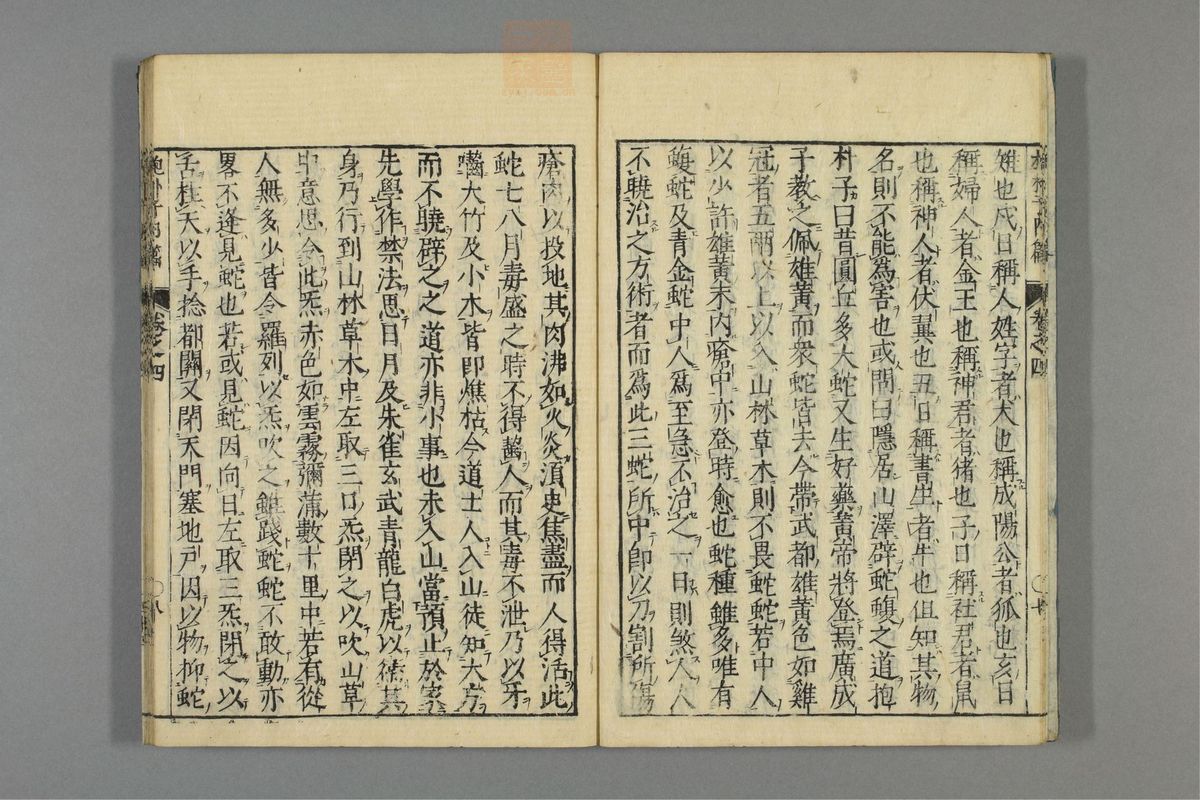 雉也戌日稱人姓字者犬也稱成陽公者狐也亥日
稱婦人者金玉也稱神君者猪也子日稱社君者鼠
也稱神人者伏翼也丑日稱書生者牛也但知其物
名則不能爲害也或問曰隱居山澤辟蛇蝮之道抱
朴子曰昔圓丘多大蛇又生好藥黃帝將登焉廣成
子教之佩雄黃而衆蛇皆去今帶武都雄黃色如雞
冠者五兩以上以入山林草木則不畏蛇蛇若中人
以少許雄黃末内瘡中亦登時愈也蛇種雖多唯有
蝮蛇及青金蛇中人爲至急不治之一日則煞人人
不曉治之方術者而爲此三蛇所中即以刀割所傷
瘡肉以投地其肉沸如火炎須臾焦盡而人得活此
蛇七八月毒盛之時不得齧人而其毒不泄乃以牙
嚙大竹及小木皆即燋枯今道士人入山徒知大方
而不曉辟之之道亦非小事也未入山當預止於家
先學作禁法思日月及朱雀玄武青龍白虎以衛其
身乃行到山林草木中左取三口炁閉之以吹山草
中意思令此炁赤色如雲霧彌滿數十里中若有從
人無多少皆令羅列以炁吹之雖踐蛇蛇不敢動亦
畧不逢見蛇也若或見蛇因向日左取三炁閉之以
舌柱天以手捻都關又閉天門塞地戸因以物抑蛇
抱朴子内篇
卷之四
八